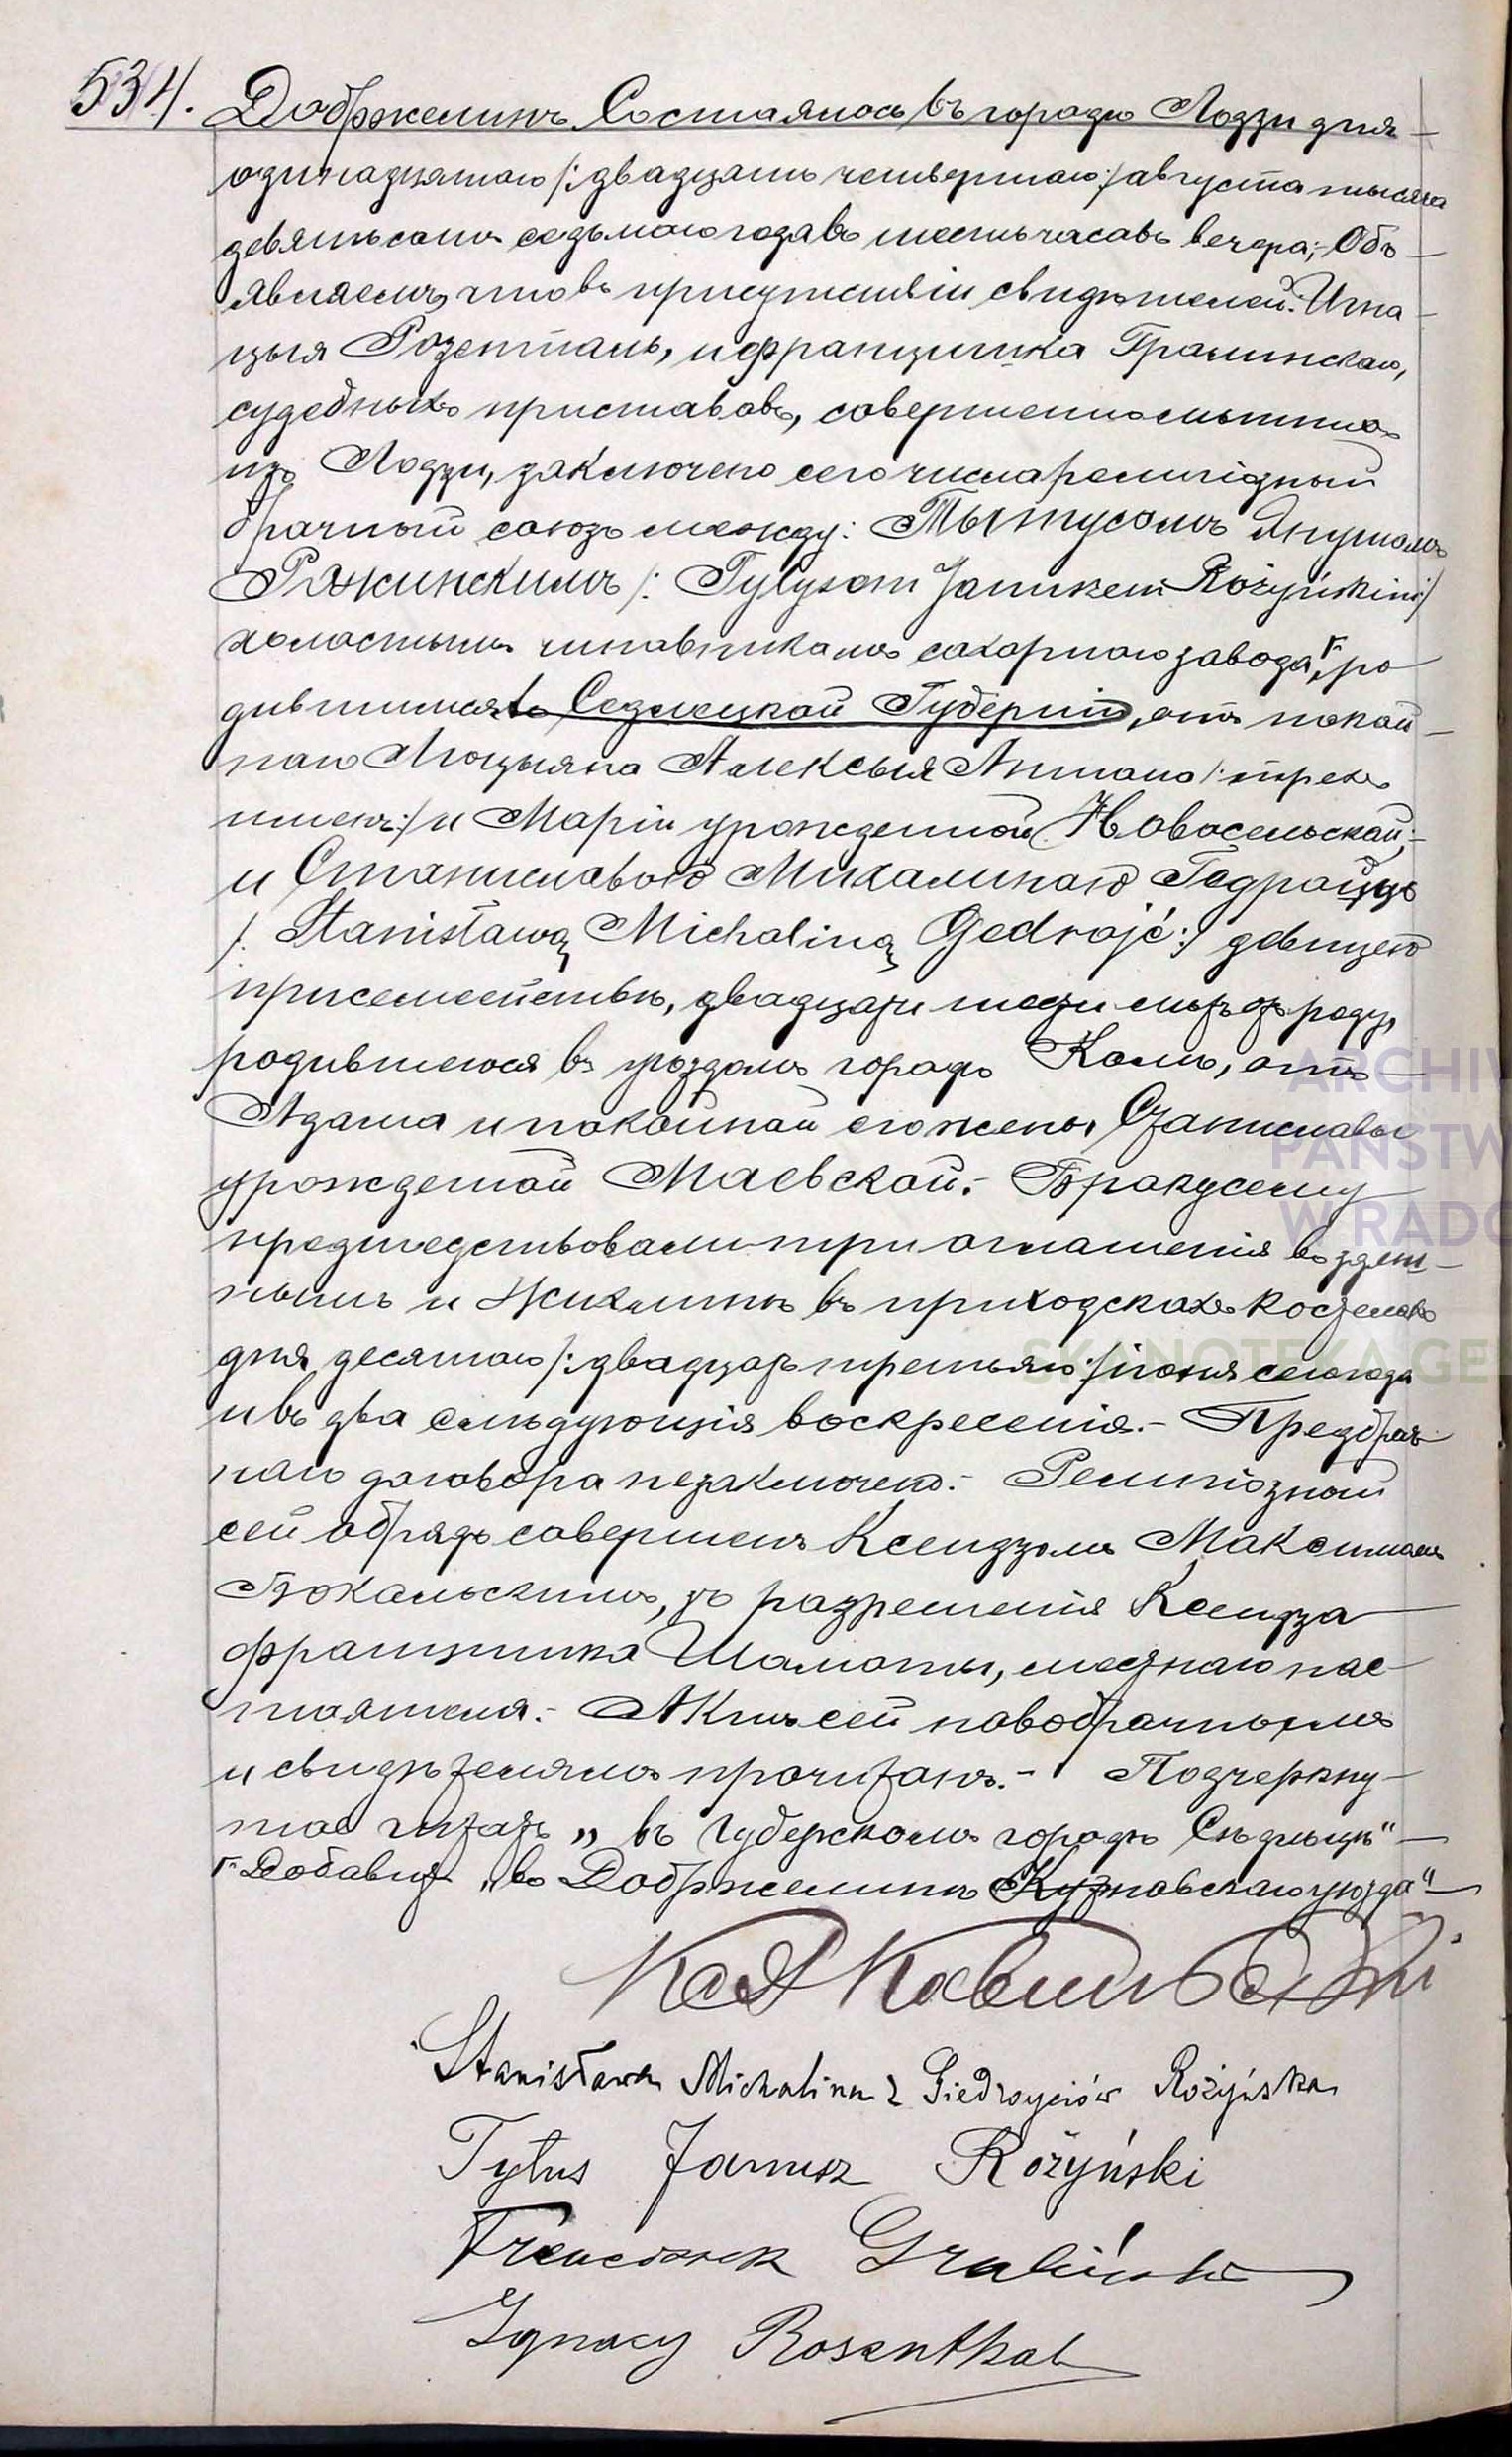 534. Добржелинъ. Состоялось въ городѣ Лодзи дня
одинадцатаго /:двадцать четвертаго:/ августа тысяча
девятьсотъ седьмого года въ шесть часовъ вечера; Объ
являемъ, что въ присутствіи свидѣтелей: Игна
цыя Розенталь, и Францишка Гралинскаго,
судебныхъ приставовъ, совершеннолѣтнихъ
изъ Лодзи, заключено сего числа религіозный
брачный союзъ между: Тытусомъ Янушомъ
Рожинскимъ /: Tytusem Januszem Rożyńskim:/
холостымъ чиновникомъ сахарнаго завода ┌, ро
дившимся въ Седлецкой Губерніи, отъ покой
наго Люцыяна Алексыя Антона /:трехъ
именъ:/ и Маріи урожденной Новосельской;
и Станиславою Михалиною Гедройць
/: Stanisławą Michaliną Gedrojć:/ дѣвицею
при семействѣ, двадцати шести лѣтъ отъ роду,
родившеюся въ уѣздомъ городѣ Колѣ, отъ
Адама и покойной его жены Станиславы
урожденной Маевской.- Браку сему
предшедствовали три оглашенія въ здеш
нымъ и Жихлинѣ въ приходскахъ костелахъ
дня десятаго /:двадцать третьяго:/ іюня сего года
и въ два слѣдующія воскресенія.- Предбрач
наго договора незаключено.- Религіозный
сей обрядъ совершенъ Ксендзомъ Максимомъ
Бокальскимъ, зъ разрешенія Ксендза
Францишка Шамоты, местнаго нас
тоятеля.- Актъ сей новобрачнымъ
и свидѣтелямъ прочитанъ.- Подчеркну
тое читать „въ Губерскомъ городѣ Сѣдлцѣ"
┌ Добавить „въ Добржелинѣ Кутновскаго уѣзда"
Stanisława Michalina z Giedroyciów Rożyńska
Tytus Janusz Rożyński
Franciszek Graliński
Ignacy Rosenthal
ARCHIW
PAŃSTW
W RADO
SKANOTEKA GE